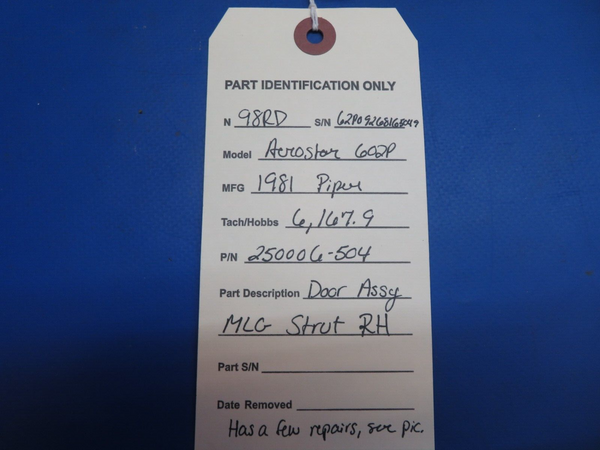 PART IDENTIFICATION ONLY
N 98RD S/N
Model Aerostar 602P
MFG 1981 Piper
Tach/Hobbs 6,167.9
P/N 250006-504
Part Description Door Assy
MLG Strut RH
Part S/N
Date Removed
Has a few repairs, see pic.